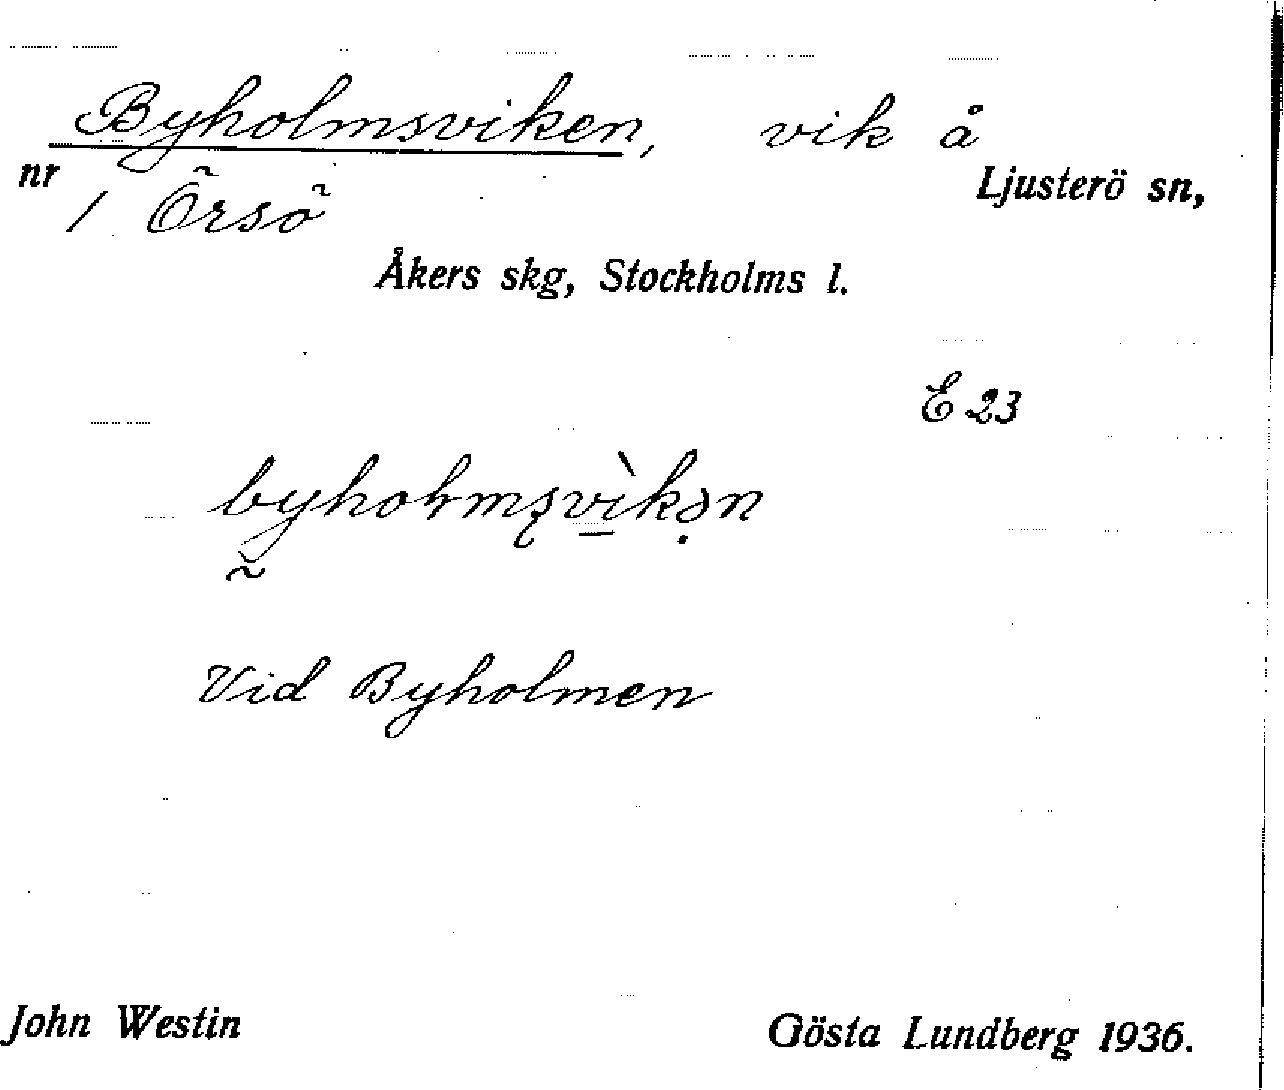 Byholmsviken, vik å
nr / Örsö Ljusterö sn,
Åkers skg, Stockholms l.
E 23
Vid Byholmen
John Westin Gösta Lundberg 1936.